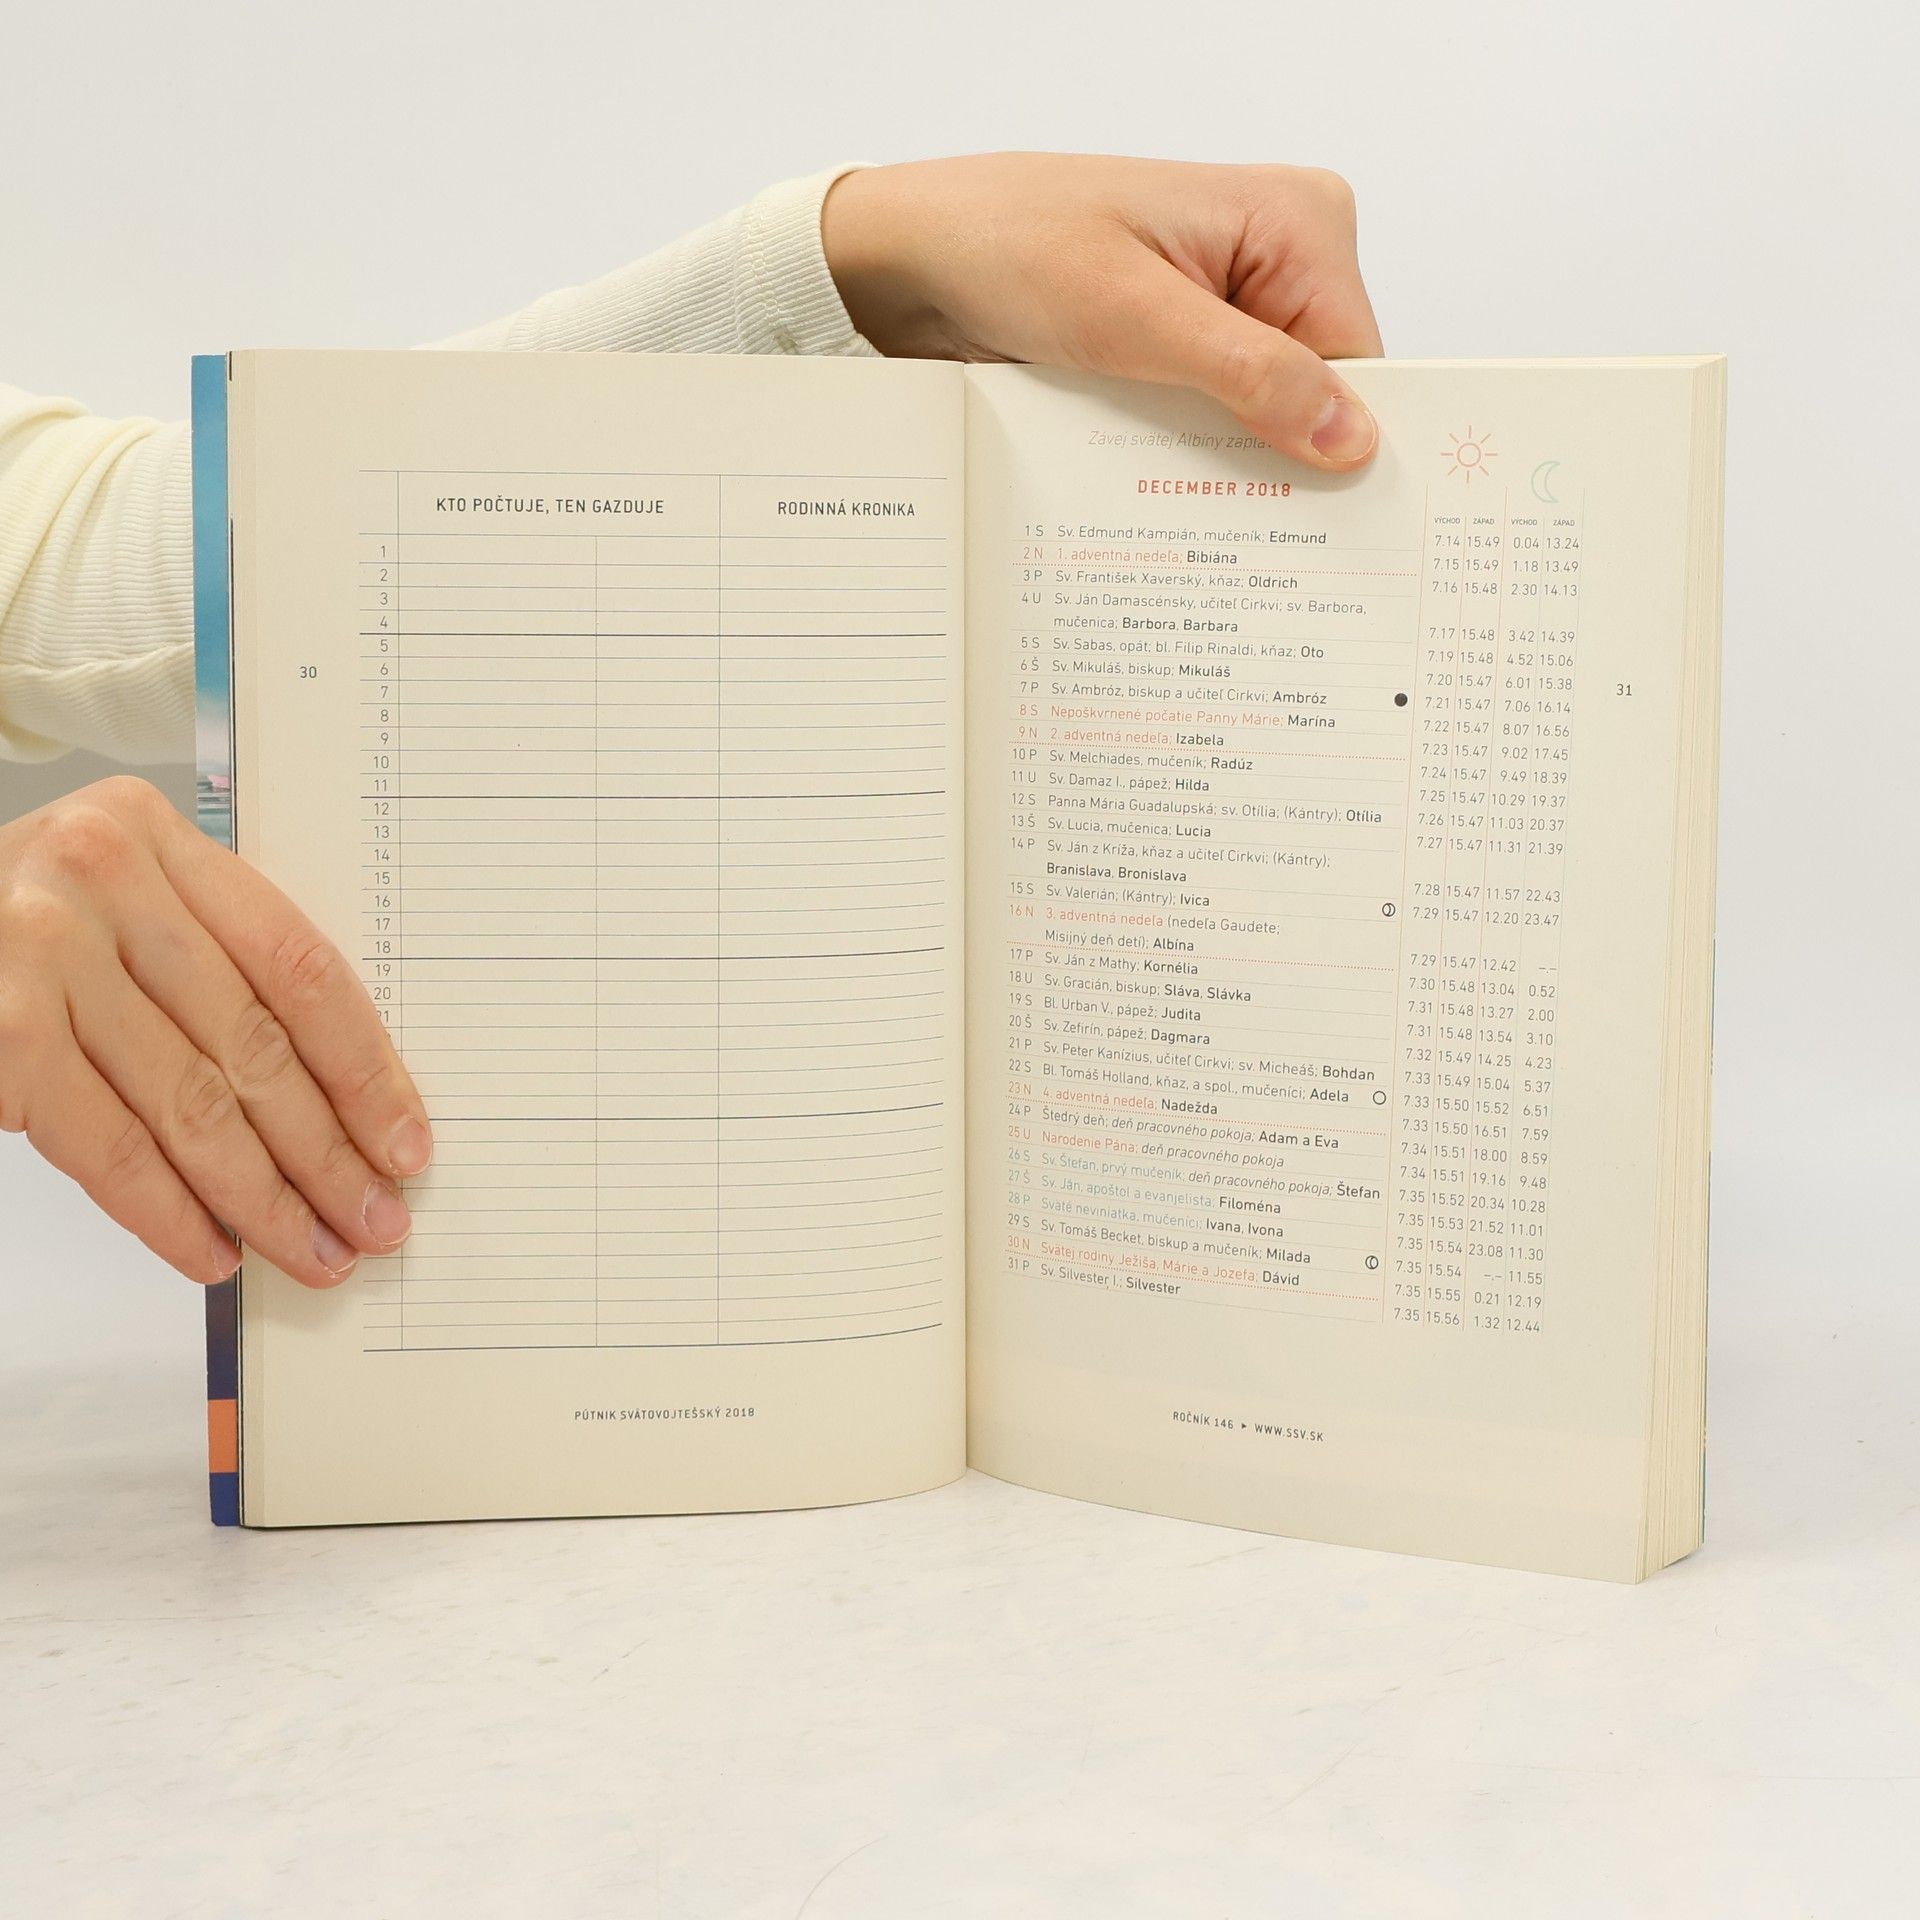 KTO POČTUJE, TEN GAZDUJE
RODINNÁ KRONIKA
1
2
3
4
5
6
7
8
9
10
11
12
13
14
15
16
17
18
19
20
30
PÚTNIK SVÄTOVOJTEŠSKÝ 2018
Závej svätej Albíny
DECEMBER 2018
VÝCHOD ZÁPAD VÝCHOD ZÁPAD
1 S Sv. Edmund Kampián, mučeník; Edmund 7.14 15.49 0.04 13.24
2 N 1. adventná nedeľa; Bibiána 7.15 15.49 1.18 13.49
3 P Sv. František Xaverský, kňaz; Oldrich 7.16 15.48 2.30 14.13
4 U Sv. Ján Damascénsky, učiteľ Cirkvi; sv. Barbora,
mučenica; Barbora, Barbara 7.17 15.48 3.42 14.39
5 S Sv. Sabas, opát; bl. Filip Rinaldi, kňaz; Oto 7.19 15.48 4.52 15.06
6 Š Sv. Mikuláš, biskup; Mikuláš 7.20 15.47 6.01 15.38
7 P Sv. Ambróz, biskup a učiteľ Cirkvi; Ambróz 7.21 15.47 7.06 16.14
8 S Nepoškvrnené počatie Panny Márie; Marína 7.22 15.47 8.07 16.56
9 N 2. adventná nedeľa; Izabela 7.23 15.47 9.02 17.45
10 P Sv. Melchiades, mučeník; Radúz 7.24 15.47 9.49 18.39
11 U Sv. Damaz I., pápež; Hilda 7.25 15.47 10.29 19.37
12 S Panna Mária Guadalupská; sv. Otília; (Kántry); Otília 7.26 15.47 11.03 20.37
13 Š Sv. Lucia, mučenica; Lucia 7.27 15.47 11.31 21.39
14 P Sv. Ján z Kríža, kňaz a učiteľ Cirkvi; (Kántry);
Branislava, Bronislava 7.28 15.47 11.57 22.43
15 S Sv. Valerián; (Kántry); Ivica 7.29 15.47 12.20 23.47
16 N 3. adventná nedeľa (nedeľa Gaudete;
Misijný deň detí); Albína 7.29 15.47 12.42 –.–
17 P Sv. Ján z Mathy; Kornélia 7.30 15.48 13.04 0.52
18 U Sv. Gracián, biskup; Sláva, Slávka 7.31 15.48 13.27 2.00
19 S Bl. Urban V., pápež; Judita 7.31 15.48 13.54 3.10
20 Š Sv. Zefirín, pápež; Dagmara 7.32 15.49 14.25 4.23
21 P Sv. Peter Kanízius, učiteľ Cirkvi; sv. Micheáš; Bohdan 7.33 15.49 15.04 5.37
22 S Bl. Tomáš Holland, kňaz, a spol., mučeníci; Adela 7.33 15.50 15.52 6.51
23 N 4. adventná nedeľa; Nadežda 7.33 15.50 16.51 7.59
24 P Štedrý deň; deň pracovného pokoja; Adam a Eva 7.34 15.51 18.00 8.59
25 U Narodenie Pána; deň pracovného pokoja 7.34 15.51 19.16 9.48
26 S Sv. Štefan, prvý mučeník; deň pracovného pokoja; Štefan 7.35 15.52 20.34 10.28
27 Š Sv. Ján, apoštol a evanjelista; Filoména 7.35 15.53 21.52 11.01
28 P Sväté neviniatka, mučeníci; Ivana, Ivona 7.35 15.54 23.08 11.30
29 S Sv. Tomáš Becket, biskup a mučeník; Milada 7.35 15.54 –.– 11.55
30 N Svätej rodiny Ježiša, Márie a Jozefa; Dávid 7.35 15.55 0.21 12.19
31 P Sv. Silvester I.; Silvester 7.35 15.56 1.32 12.44
31
ROČNÍK 146 ▸ WWW.SSV.SK